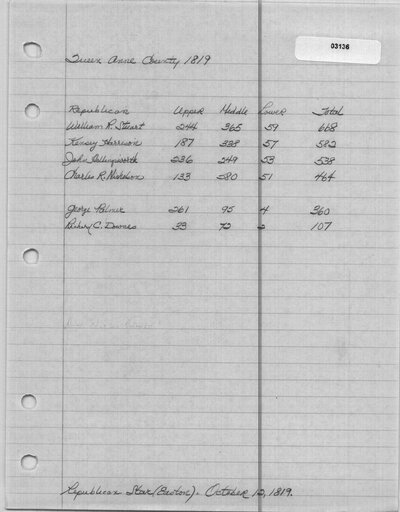 03136
Queen Anne County 1819
Republican Upper Middle Lower Total
William R. Stuart 244 365 59 668
Kensey Harrison 187 338 57 582
John 236 249 53 538
Charles R. Nicholson 133 280 51 464
George Palmer 261 95 4 360
C. Downes 33 72 2 107
Republican Star (Easton). October 12, 1819.